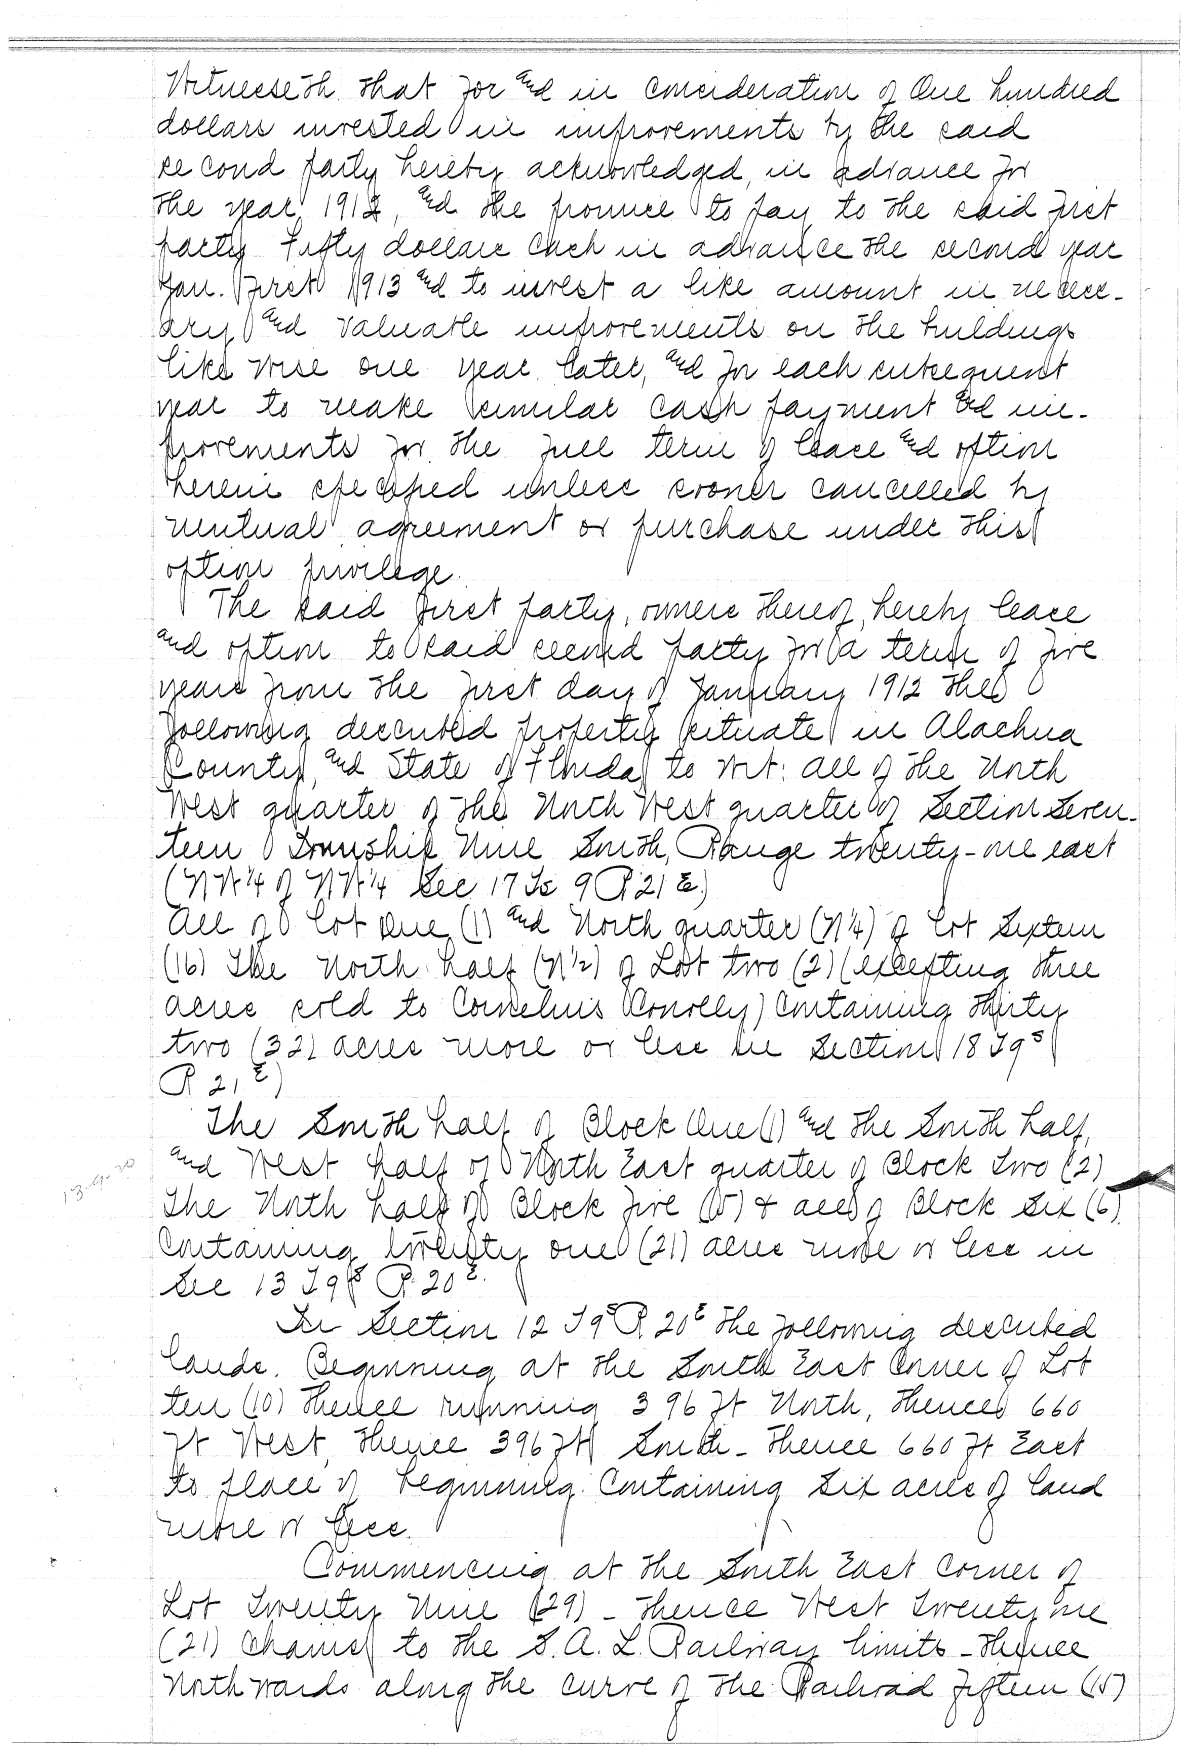 Witnesseth that for and in consideration of One hundred
dollars invested in improvements by the said
second party hereby acknowledged, in advance for
the year 1912, and the promise to pay to the said first
party Fifty dollars cash in advance the second year
Jan. first 1913 and to invest a like amount in necess-
ary and valuable improvements on the buildings
like wise one year later, and for each subsequent
year to make similar cash payment and im-
provements for the full term of lease and option
herein specified unless sooner cancelled by
mutual agreement or purchase under this
option privilege.
The said first party, owners thereof, hereby lease
and option to said second party for a term of five
years from the first day of January 1912 the
following described property situate in Alachua
County, and State of Florida, to wit: all of the North
West quarter of the North West quarter of Section Seven-
teen Township Nine South, Range twenty-one east
(NW 1/4 of NW 1/4 Sec 17 Ts 9 R 21 E.)
All of Lot One (1) and North quarter (N 1/4) of Lot Sixteen
(16) The North half (N 1/2) of Lot two (2) (excepting three
acres sold to Cornelius Conolly) Containing thirty
two (32) acres more or less in Section 18 T 9 S
R 21 E)
The South half of Block One (1) and the South half,
and West half of North East quarter of Block Two (2)
The North half of Block five (5) & all of Block Six (6)
Containing twenty one (21) acres more or less in
Sec 13 T 9 S R. 20 E.
13-9-20
In Section 12 T 9 S R 20 E the following described
lands. Beginning at the South East Corner of Lot
ten (10) thence running 396 ft North, thence 660
ft West, thence 396 ft South - thence 660 ft East
to place of beginning. Containing six acres of land
more or less.
Commencing at the South East corner of
Lot Twenty Nine (29) - thence West Twenty one
(21) chains to the S. A. L. Railway limits - thence
Northwards along the curve of the Railroad fifteen (15)